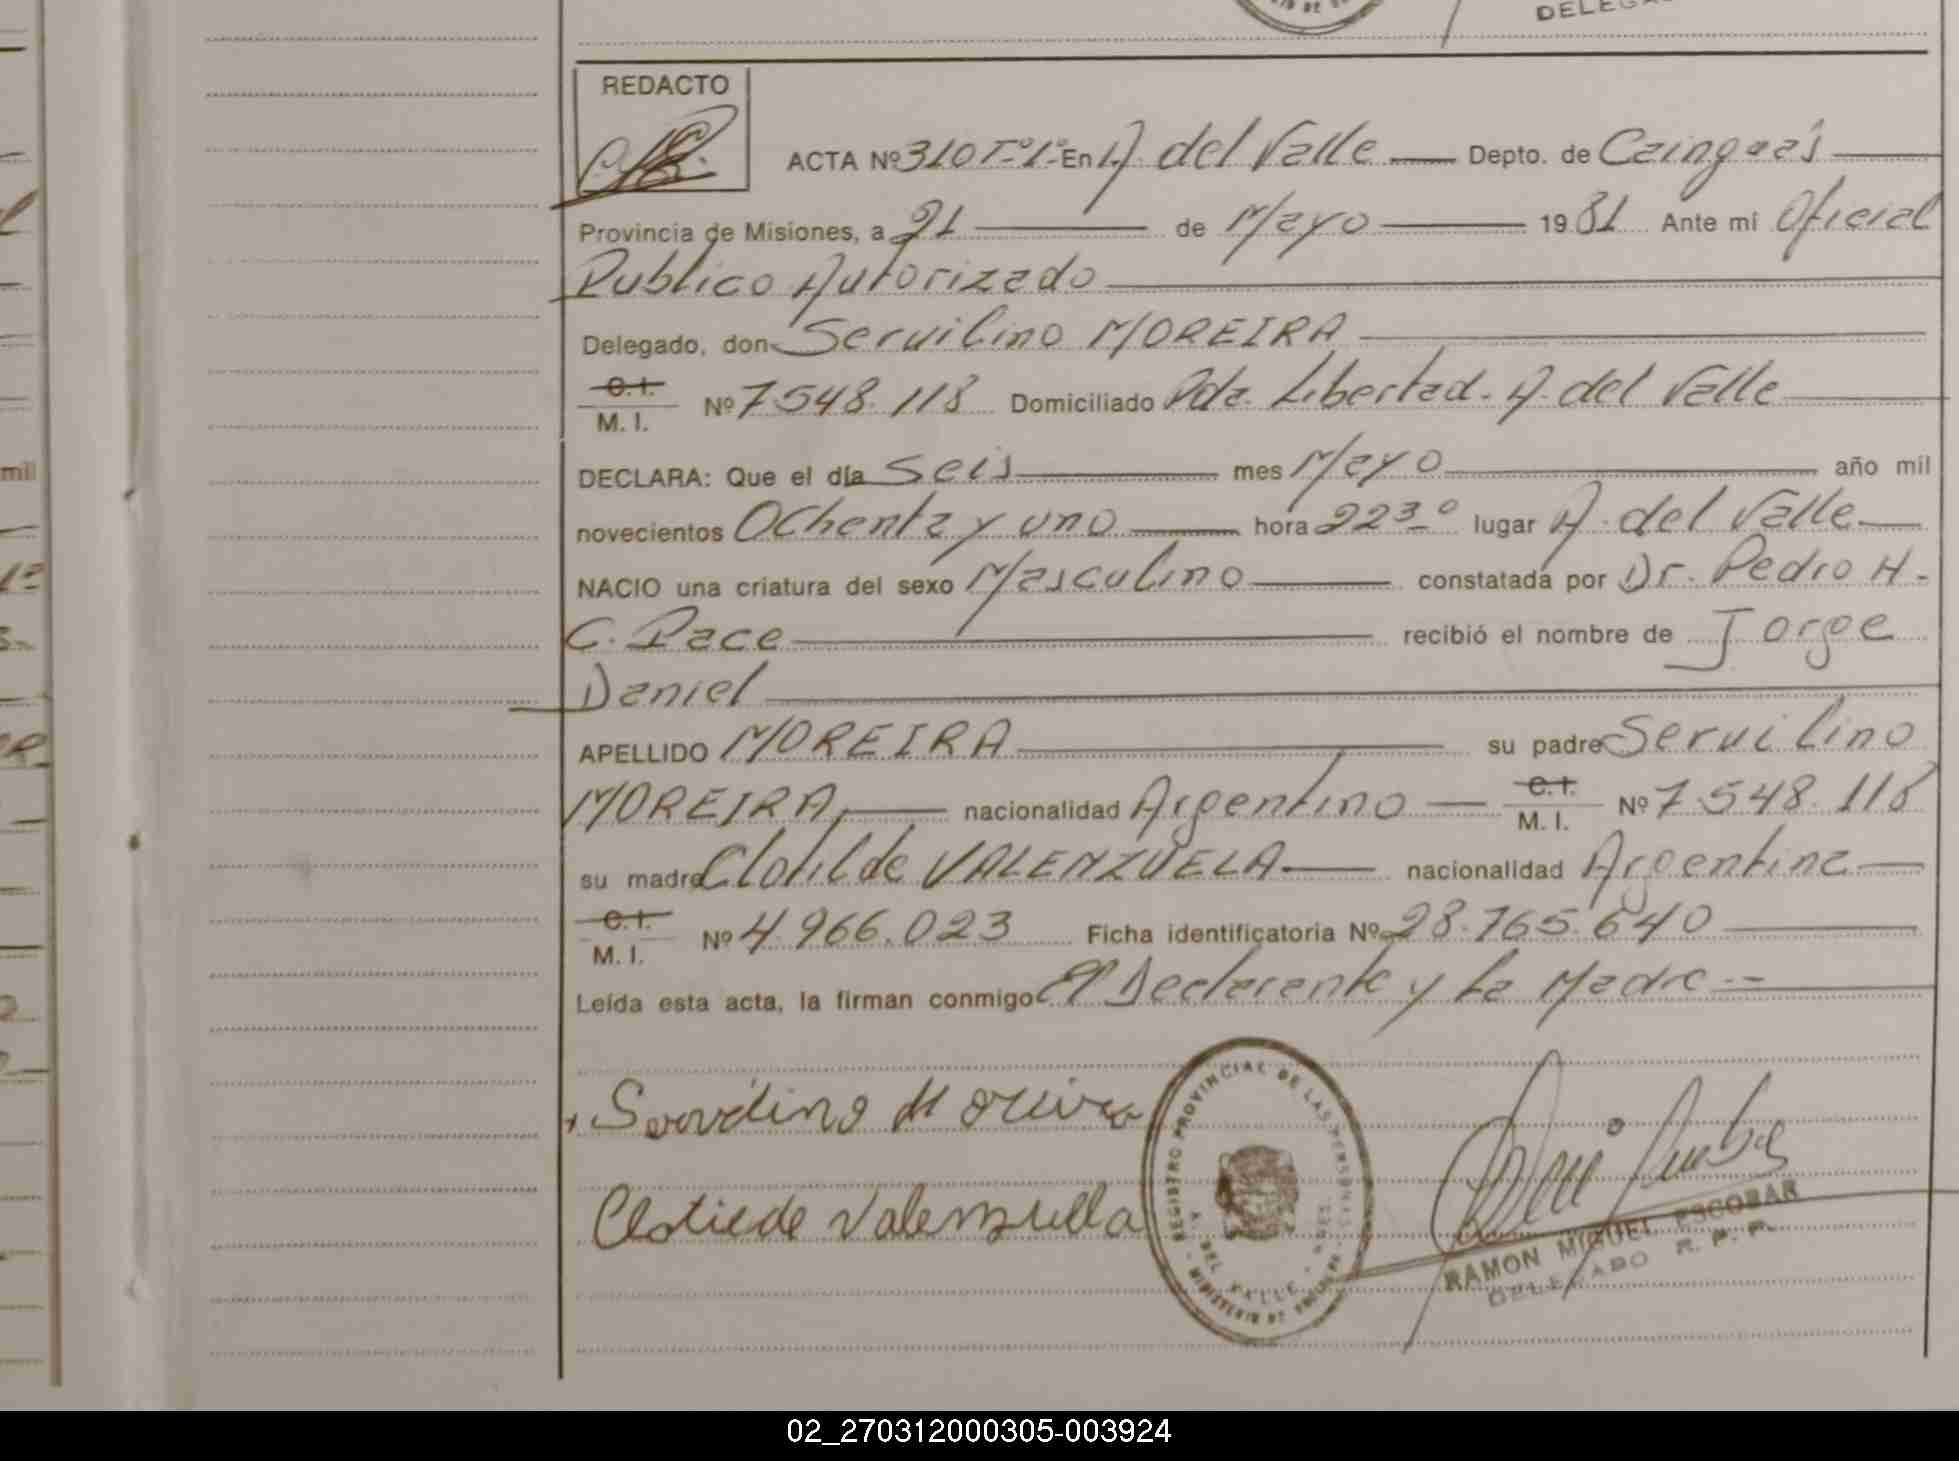 DELEGA
REDACTO
ACTA Nº 310 Tº 1º En A. del Valle Depto. de Caingoas
Provincia de Misiones, a 21 de Mayo 1981 Ante mí Oficial
Publico Autorizado
Delegado, don Servilino MOREIRA
C.I.
M. I. Nº 7.548.118 Domiciliado Pda. Libertad. A. del Valle
DECLARA: Que el día Seis mes Mayo año mil
novecientos Ochenta y uno hora 22 30 lugar A. del Valle
NACIO una criatura del sexo Masculino constatada por Dr. Pedro H.
C. Pace recibió el nombre de Jorge
Daniel
APELLIDO MOREIRA su padre Servilino
MOREIRA, nacionalidad Argentino C.I. M. I. Nº 7.548.118
su madre Clotilde VALENZUELA nacionalidad Argentina
C.I.
M. I. Nº 4.966.023 Ficha identificatoria Nº 28.765.640
Leída esta acta, la firman conmigo El Declarante y La Madre
Servilino Moreira
Clotilde Valenzuella
REGISTRO PROVINCIAL DE LAS PERSONAS
A. DEL VALLE
MINISTERIO DE GOBIERNO
RAMON MIGUEL ESCOBAR
DELEGADO R. P. P.
02_270312000305-003924